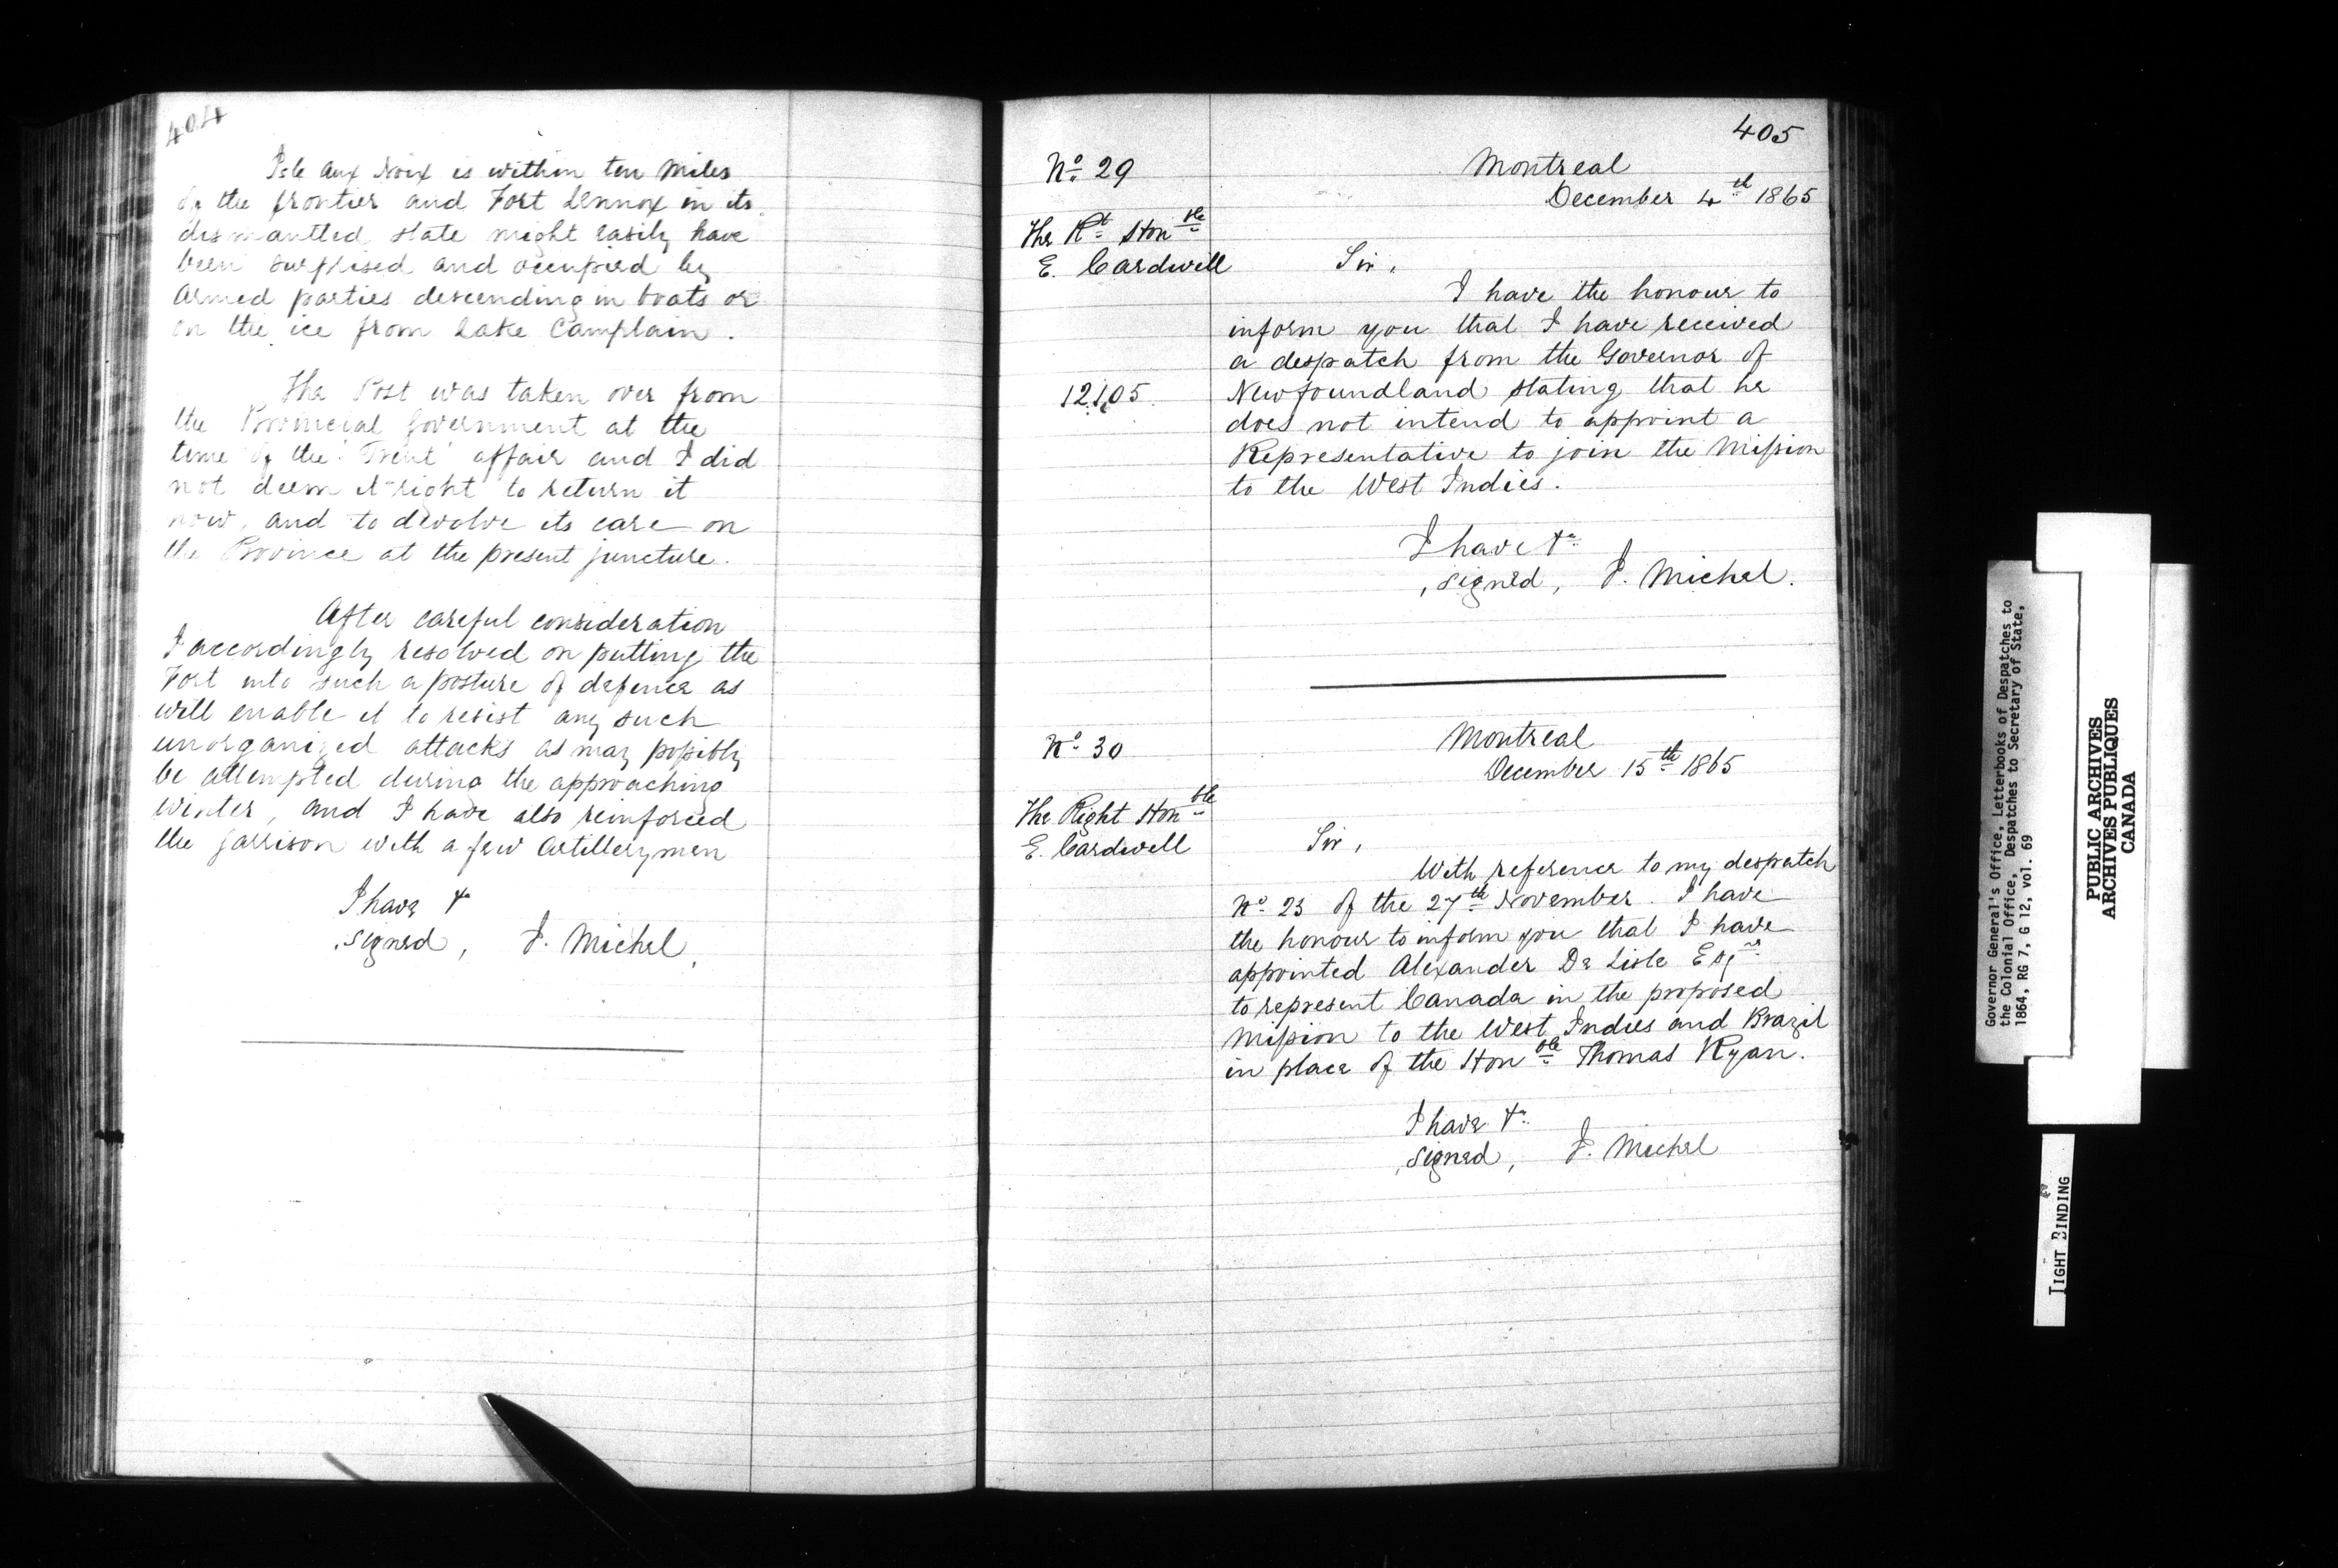 404
Isle aux Noix is within ten miles
of the frontier and Fort Lennox in its
dismantled state might easily have
been surprised and occupied by
Armed parties descending in boats or
on the ice from Lake Camplain.
The Post was taken over from
the Provincial Government at the
time of the 'Trent' affair and I did
not deem it right to return it
now, and to devolve its care on
the Province at the present juncture.
After careful consideration
I accordingly resolved on putting the
Fort into such a posture of defence as
will enable it to resist any such
unorganized attacks as may possibly
be attempted during the approaching
Winter, and I have also reinforced
the garrison with a few Artillerymen
I have &c
, signed, J. Michel,
405
No. 29
Montreal
December 4th 1865
The Rt Honble
E. Cardwell
Sir,
I have the honour to
inform you that I have received
a despatch from the Governor of
12105
Newfoundland stating that he
does not intend to appoint a
Representative to join the Mission
to the West Indies.
I have &c
, signed, J. Michel.
No. 30
Montreal
December 15th 1865
The Right Honble
E. Cardwell
Sir,
With reference to my despatch
No. 23 of the 27th November. I have
the honour to inform you that I have
appointed Alexander De Lisle Esqre
to represent Canada in the proposed
Mission to the West Indies and Brazil
in place of the Honble Thomas Ryan.
I have &c
, signed, J. Michel
Governor General's Office, Letterbooks of Despatches to
the Colonial Office, Despatches to Secretary of State,
1864, RG 7, G 12, vol. 69
PUBLIC ARCHIVES
ARCHIVES PUBLIQUES
CANADA
TIGHT BINDING